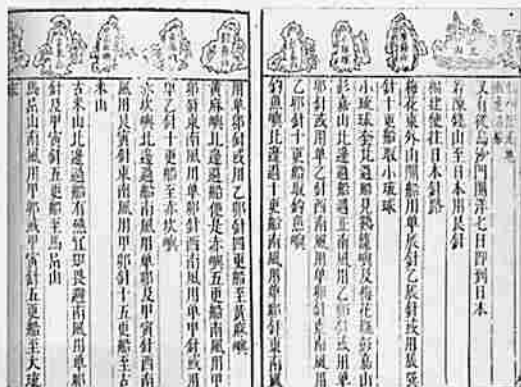 又有從烏沙門開洋七日即到日本
若陳錢山至日本用艮針
福建使往日本針路
梅花東外山開船用單辰針乙辰針或用辰巽
針十更船取小琉球
小琉球套北過船見雞籠嶼及梅花瓶彭嘉山
彭嘉山北邊過船遇正南風用乙卯針或用單
卯針或用乙針西南風用單卯針東南風用
乙卯針十更船取釣魚嶼
釣魚嶼北邊過十更船南風用單卯針東南風
用單卯針或用乙卯針四更船至黃麻嶼
黃麻嶼北邊過船便是赤嶼五更船南風用甲
卯針東南風用單卯針西南風用單甲針或用
單乙針十更船至赤坎嶼
赤坎嶼北邊過船南風用單卯及甲寅針西南
風用艮寅針東南風用甲卯針十五更船至古
米山
古米山北邊過船有礁宜知畏避南風用單卯
針及甲寅針五更船至馬岊山
馬岊山南風用甲卯或甲寅針五更船至大琉
球